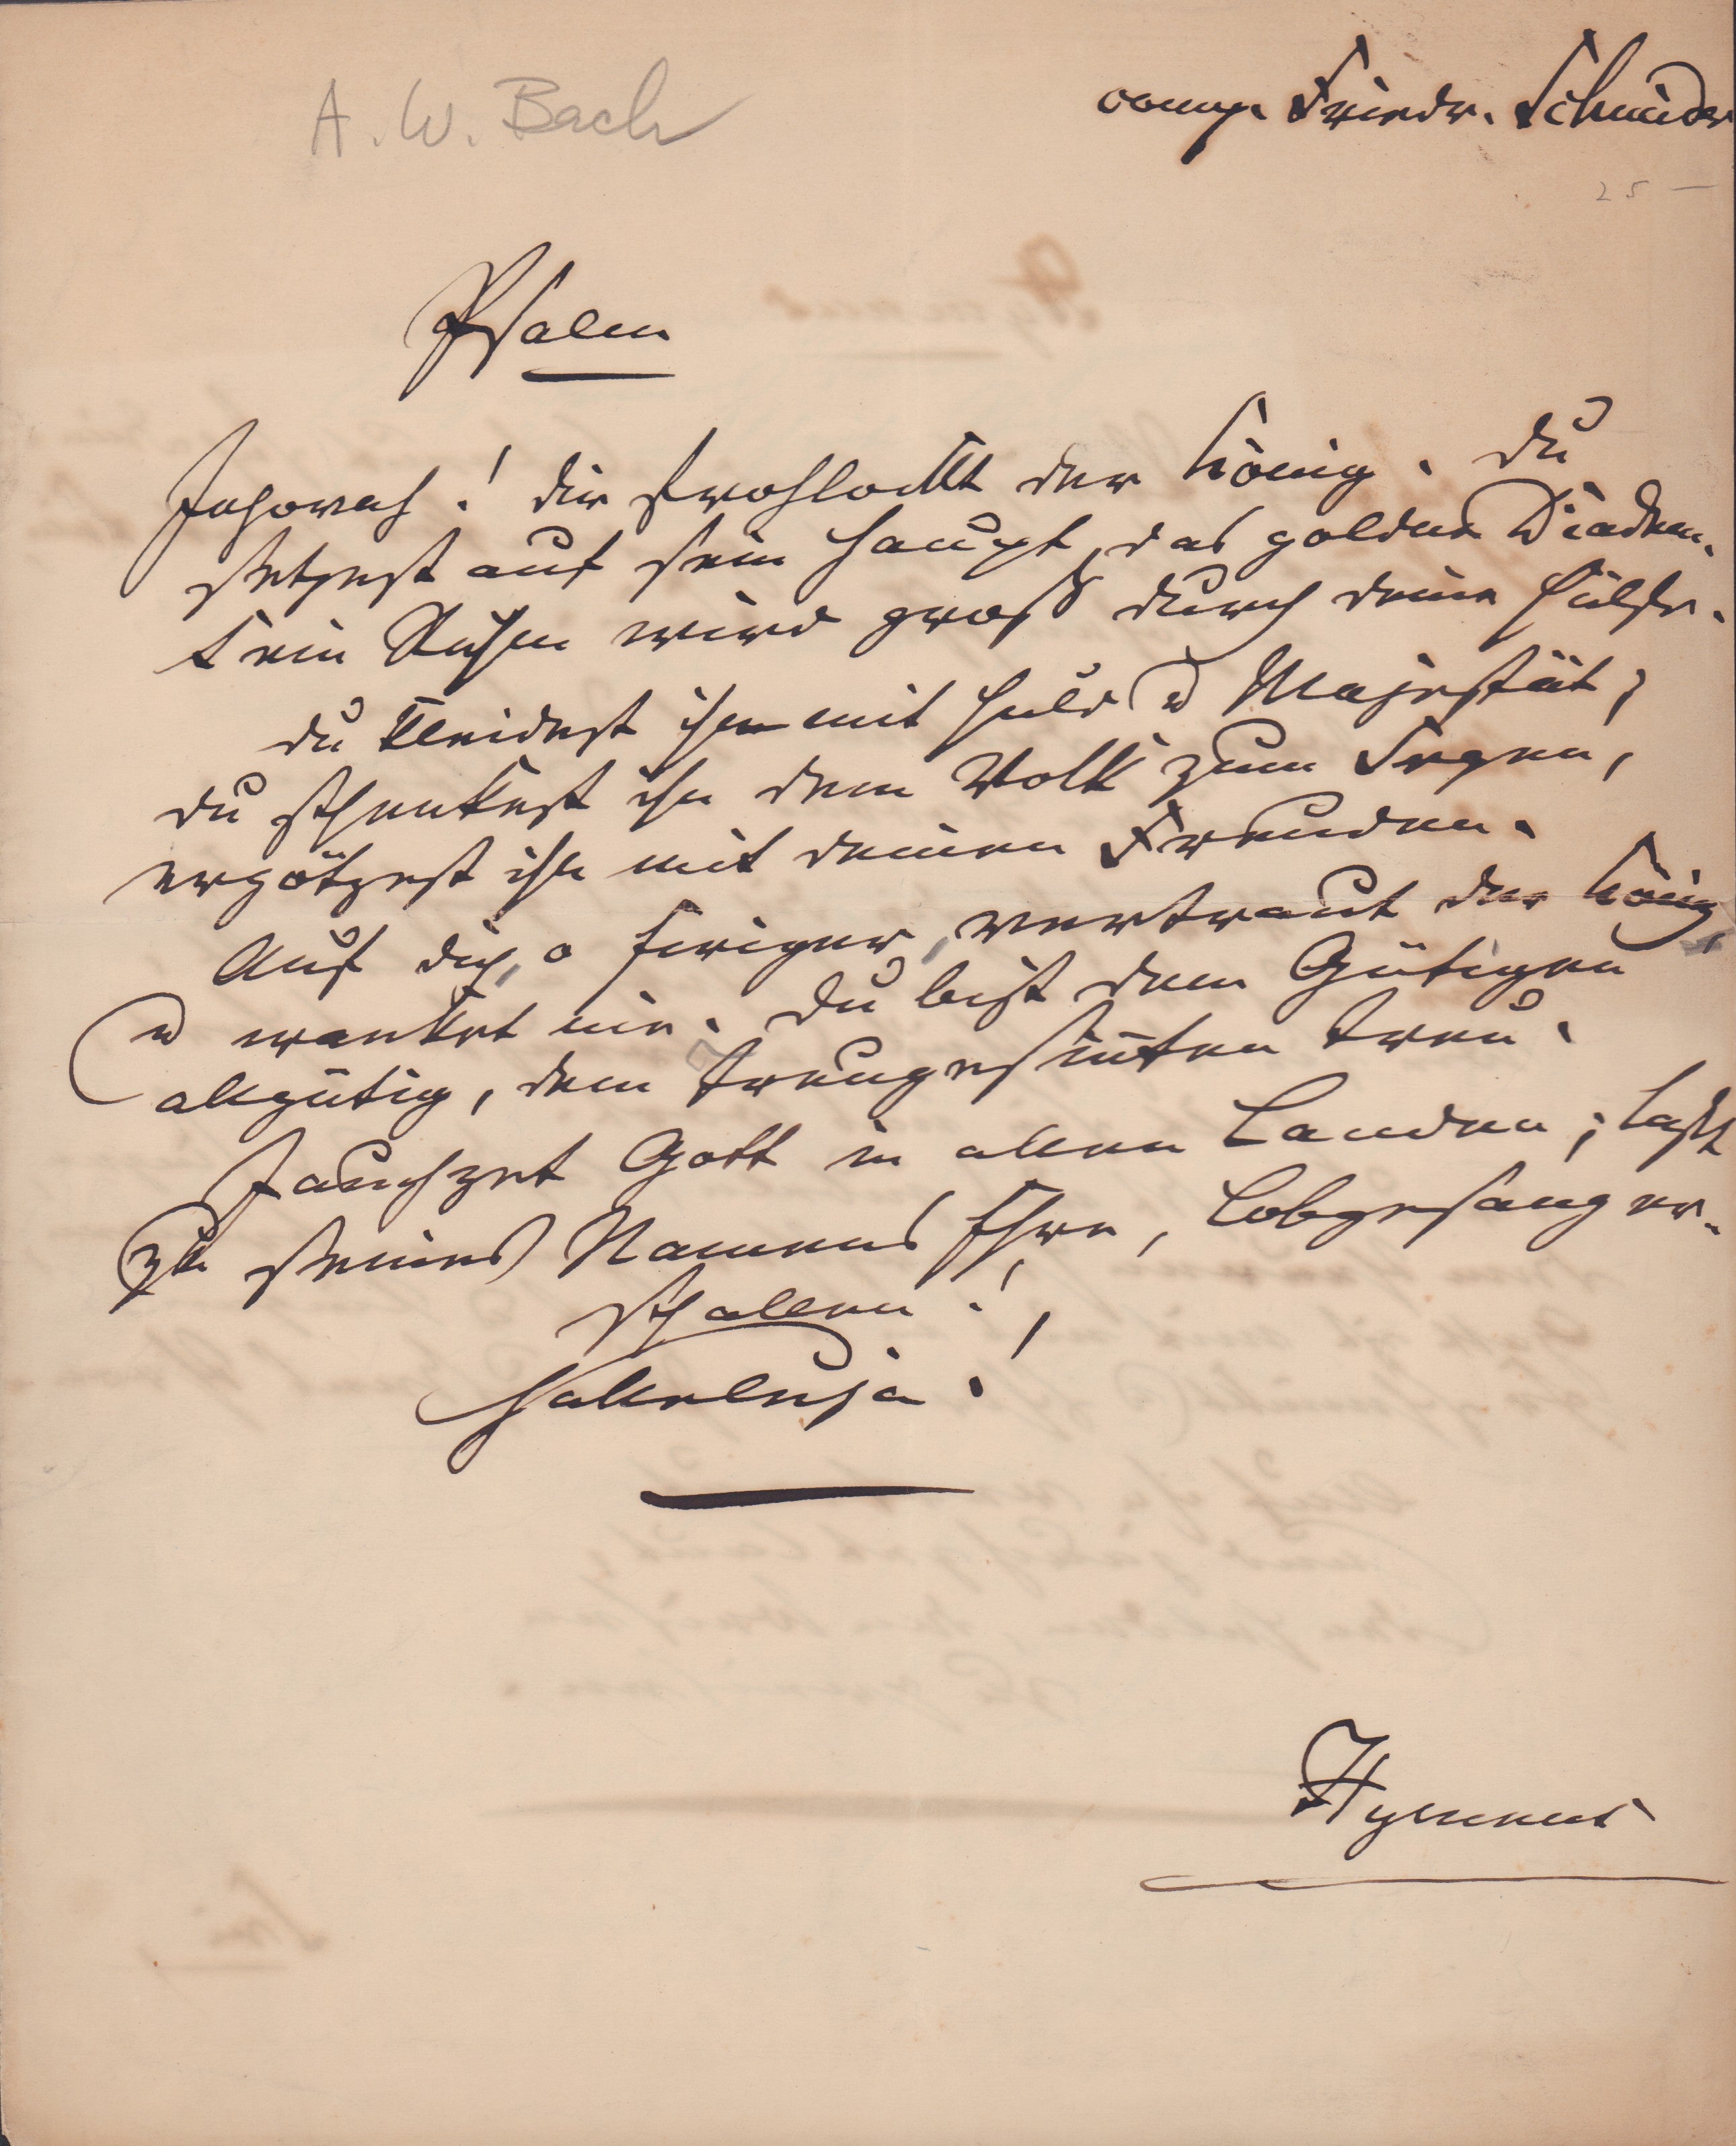 A. W. Bach
comp. Friedr. Schneider
25 —
Psalm
Jehovah! dir frohlockt der König. Du
setzest auf sein Haupt das goldne Diadem.
Sein Ruhm wird groß durch deine Hülfe.
Du kleidest ihn mit Huld u Majestät;
du schenkest ihn dem Volk zum Segen,
ergötzest ihn mit deinen Freuden.
Auf dich, o Ewiger, vertraut der König,
u wanket nie. Du bist dem Gütigen
allgütig, dem Treugesinnten treu.
Jauchzet Gott in allen Landen; laßt
zu seines Namens Ehre, Lobgesang er-
schallen!
Halleluja!
Hymnus